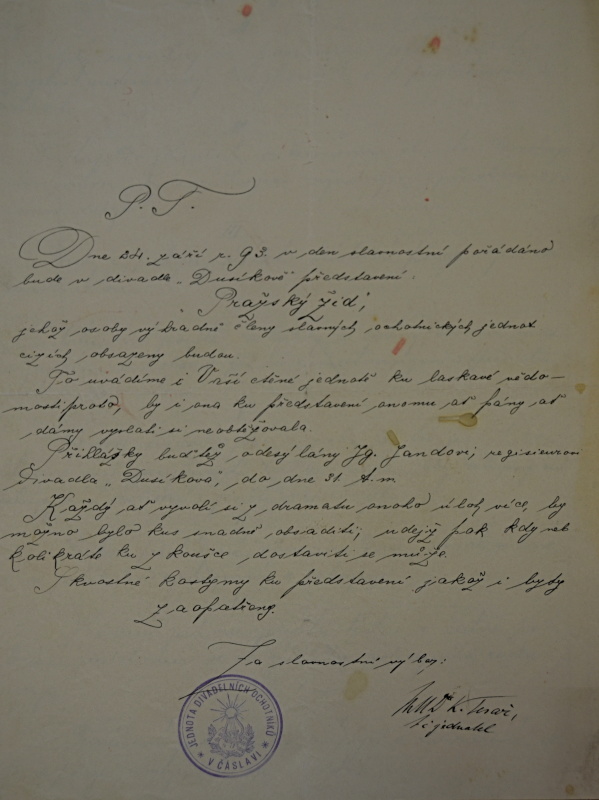 P. T.
Dne 24. září r. 93. v den slavnostní pořádáno
bude v divadle „Dusíkově" představení
Pražský žid,
jehož osoby výhradně členy slavných ochotnických jednot
cizích obsazeny budou.
To uvádíme i Vaší ctěné jednotě ku laskavé vědo-
mosti proto, by i ona ku představení onomu ať pány ať
dámy vyslati si neobtěžovala.
Přihlášky buďtež odesýlány Ig. Jandovi, regisieurovi
divadla „Dusíkova", do dne 31. t. m.
Každý ať vyvolí si z dramatu onoho úloh více, by
možno bylo kus snadně obsaditi; udejž pak kdy neb
kolikráte ku zkoušce dostaviti se může.
Skvostné kostymy ku představení jakož i byty
zaopatřeny.
Za slavnostní výbor:
MUDr. K.
jednatel
JEDNOTA DIVADELNÍCH OCHOTNÍKŮ
V ČÁSLAVI